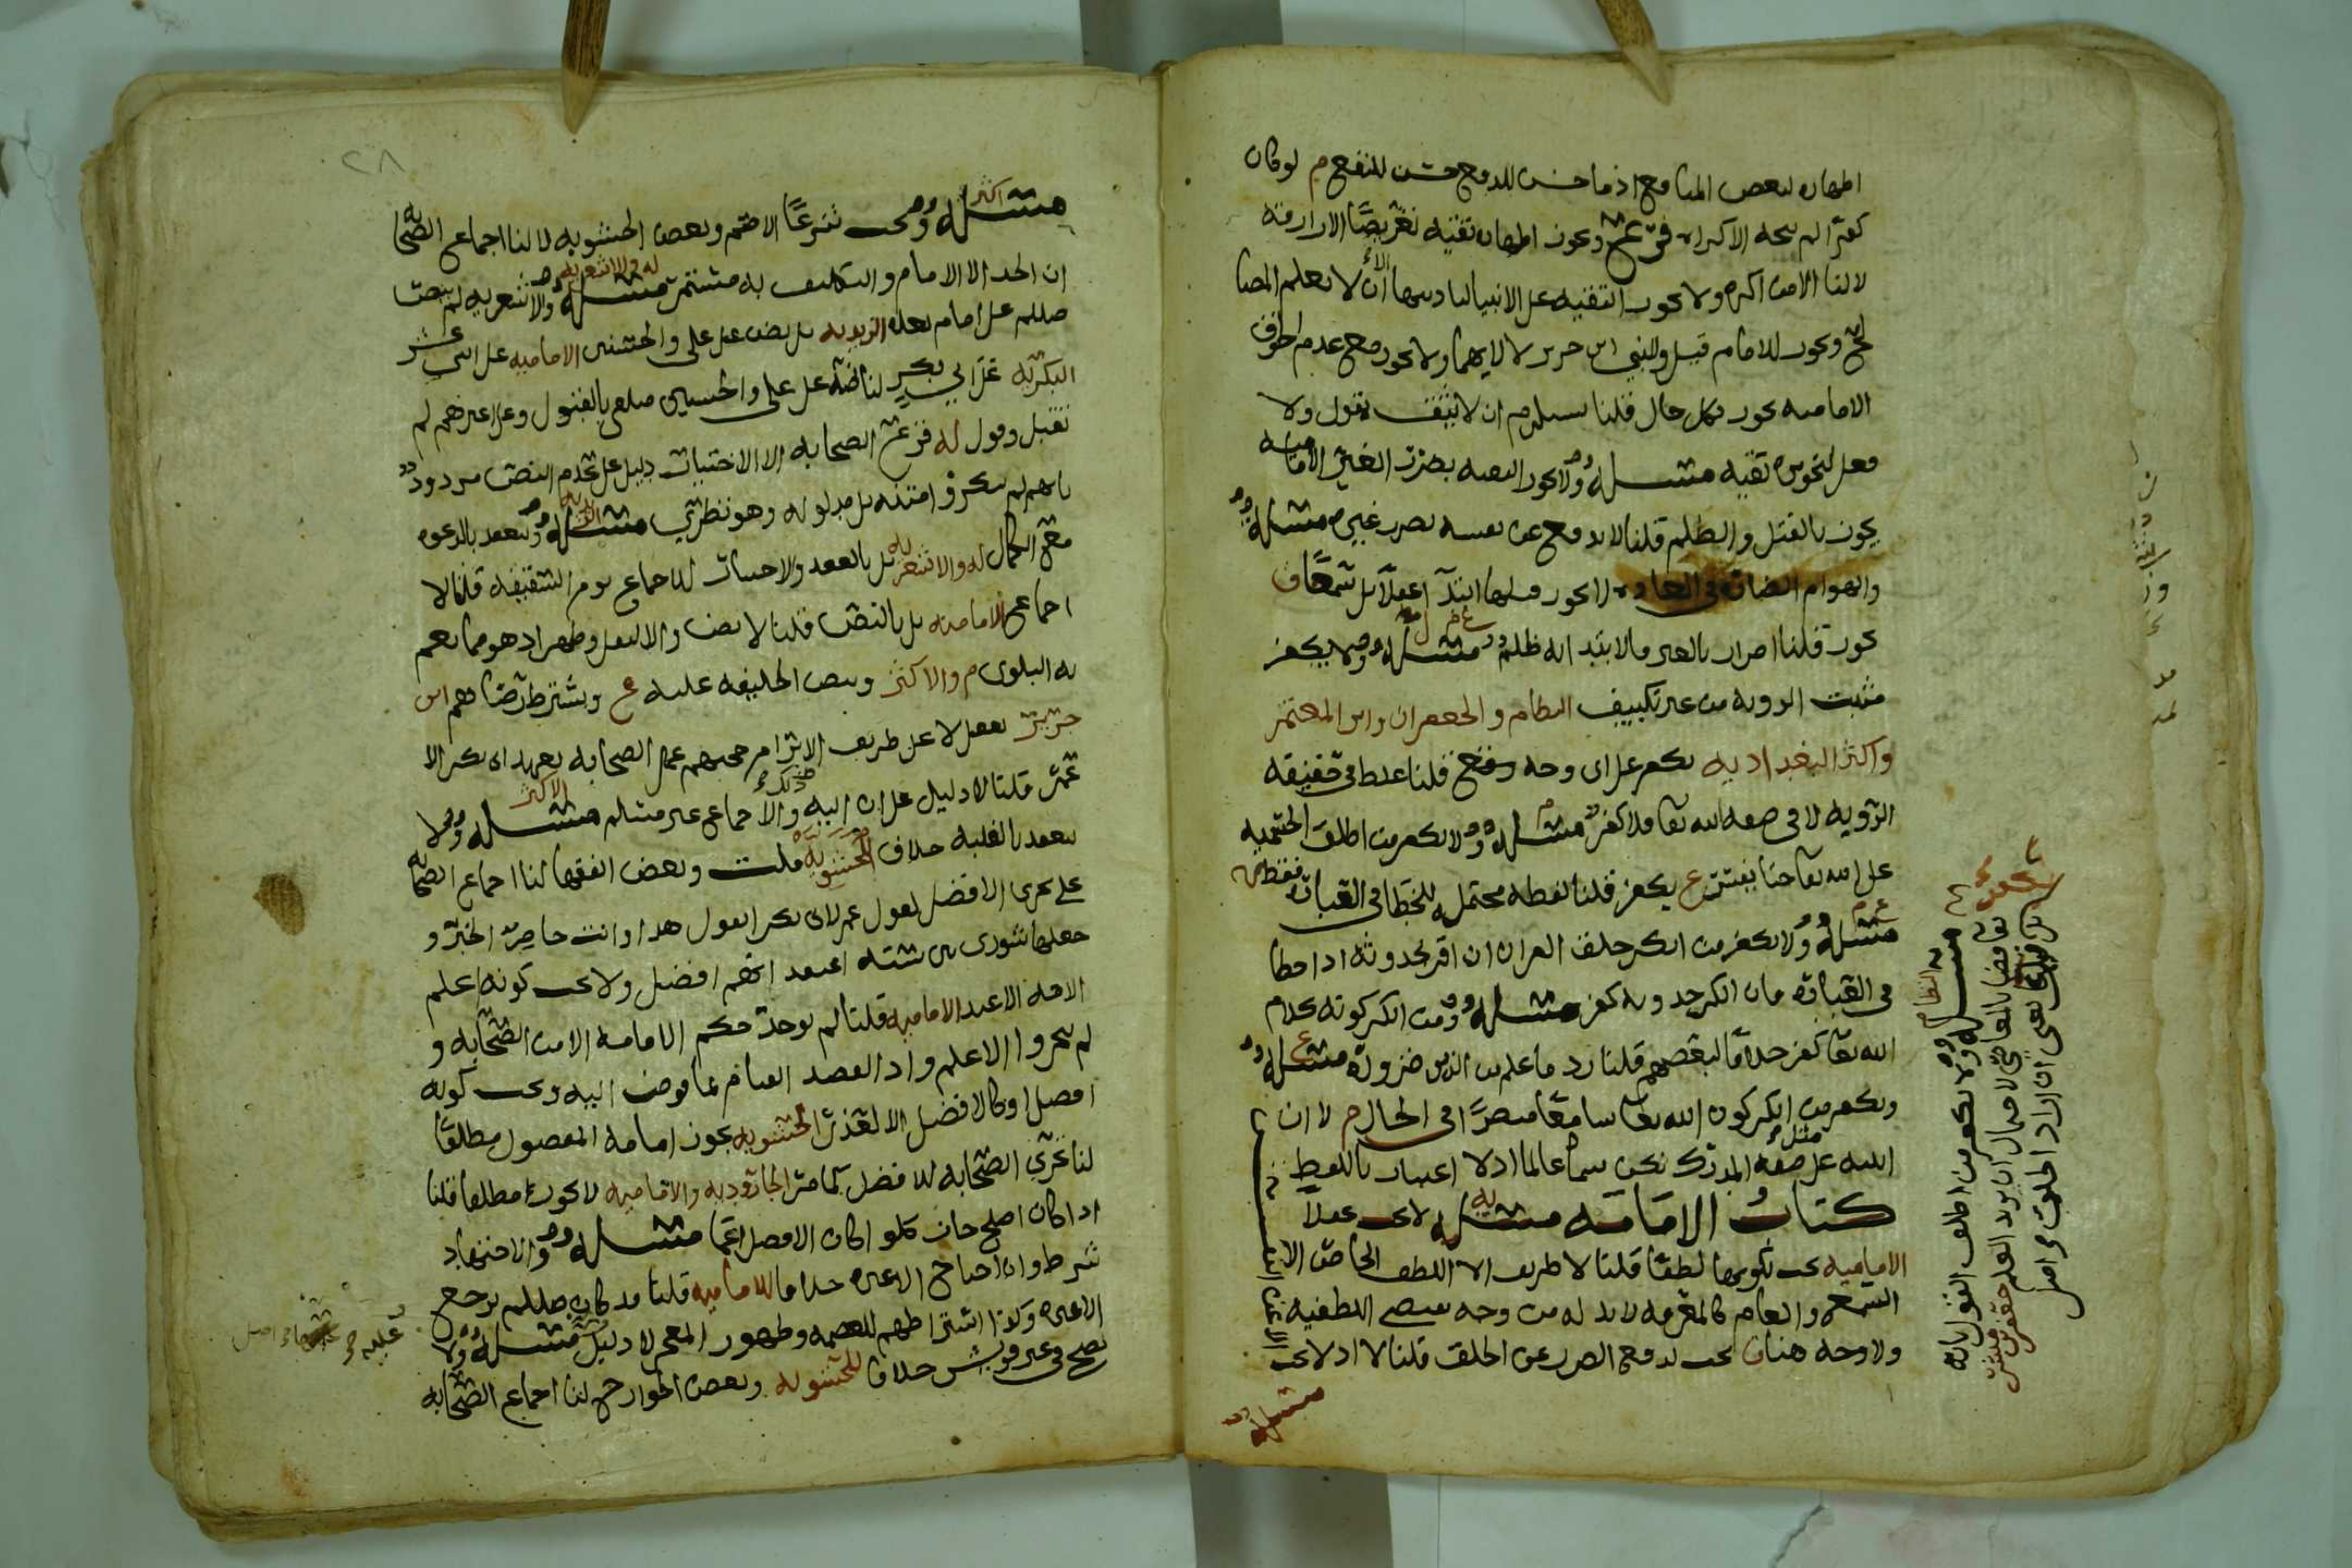 اظهاره لبعض المنافع اذ ما حسن للدفع حسن للنفع م لو كان
كفرا لم يبحه الاكراه فرع ع ويجوز اظهاره تقية تعريضا الا ازارقة
لا لنا الا من اكره ولا يجوز التقية على الانبيا لتاديتها الى ان لا تعلم المصا
لح ويجوز للامام قيل وللنبي ابن جرير لا لايهما ولا يجوز مع عدم الخوف
الامامية يجوز بكل حال قلنا يستلزم ان لا يثق بقول ولا
فعل لتجويزه تقية مسئلة ولا يجوز التقية بضرر الغير الامامية
يجوز بالقتل والظلم قلنا لا يدفع عن نفسه بضرر غيره مسئلة
والهوام الضارة في العادة لا يجوز قتلها ابتداء عقلا بل سمعا ق
يجوز قلنا اضرار بالغير والابتدا به ظلم مسئلة ولا يكفر
مثبت الروية من غير تكييف النظام والجعفران وابن المعتمر
واكثر البغدادية يكفر على اي وجه وقع قلنا غلط في حقيقة
الروية لا في صفة الله تعا فلا كفر مسئلة ولا يكفر من اطلق الجسمية
على الله تعا حتا يفسر ع يكفر قلنا لفظه محتمل للخطا في العبارة فقط
مسئلة ولا يكفر من انكر خلق القران ان اقر بحدوثه اذ اخطا
في العبارة فان انكر حدوثه كفر مسئلة ومن انكر كونه كلام
الله تعا كفر خلافا لبعضهم قلنا رد ما علم من الدين ضرورة مسئلة
ويكفر من انكر كون الله تعا سامعا مبصرا في الحال م لا ان
اثبته على مثل صفة المدرك بكونه عالما اذ لا اعتبار باللفظ
كتاب الامامة مسئلة لا تجب عقلا
الامامية تجب لكونها لطفا قلنا لا طريق الا اللطف الخاص الا
السمع والعام كالمعرفة لا بد له من وجه يقتضي اللطفية
ولا وجه هنا ق تجب لدفع الضرر عن الخلق قلنا لا اذ لا تجب
مسئلة ولا يكفر من اطلق القول بانه
تعا قضا بالمعاصي لاحتمال ان يريد العلم حتى يفسر
بل فيما يعني ان اراد الخلق اصل
٢٨
مسئلة وتجب شرعا الاصم وبعض الحشوية لا لنا اجماع الصحابة
ان الحد الا الامام والتكليف به مستمر مسئلة والاشعرية لم ينص
صللم على امام بعده الزيدية بل نص على علي والحسنين الامامية على اثني عشر
البكرية على ابي بكر لنا نصه على علي والحسنين متلقى بالقبول وعلى غيرهم لم
تقبل وقول له فزع الصحابة الى الاختيار دليل على عدم النص مردود
بانهم لم ينكروا متنه بل مدلوله وهو نظري مسئلة وتنعقد بالدعوة
مع الكمال له والاشعرية بل بالعقد والاختيار للاجماع يوم السقيفة قلنا لا
اجماع الامامية بل بالنص قلنا لا نص والا لنقل وظهر اذ هو مما تعم
به البلوى م والاكثر وبنص الخليفة عليه ع ويشترط رضاهم ابن
جرير تعقل لا على طريق الالزام حجتهم عمل الصحابة بعهد ابي بكر الى
عمر قلنا لا دليل على ذلك والاجماع غير مسلم مسئلة ولا
تنعقد بالغلبة خلاف الحشوية قلت وبعض الفقها لنا اجماع الصحابة
على تحري الافضل لقول عمر لابي بكر اتقول هذا وانت حاضر الخبر و
جعلها شورى بين ستة اعتقد انهم افضل ولا يجب كونه اعلم
الامة الا عند الامامية قلنا لم يوجد حكم الامامة الا من الصحابة و
لم يتحروا الاعلم واذ القصد القيام بما فوض اليه ويجب كونه
افضل او كالافضل الا لعذر الحشوية يجوز امامة المفضول مطلقا
لنا تحري الصحابة للافضل كما مر الجارودية والامامية لا يجوز مطلقا قلنا
اذا كان اصلح جاز كلو كان الافضل اعما مسئلة والاجتهاد
شرط وان احتاج الى غيره خلافا للامامية قلنا قد كان صللم يرجع
الى غيره وكذا اشتراطهم للعصمة وظهور المعجز لا دليل عليه مسئلة ولا
تصح في غير قريش خلافا للحشوية وبعض الخوارج لنا اجماع الصحابة